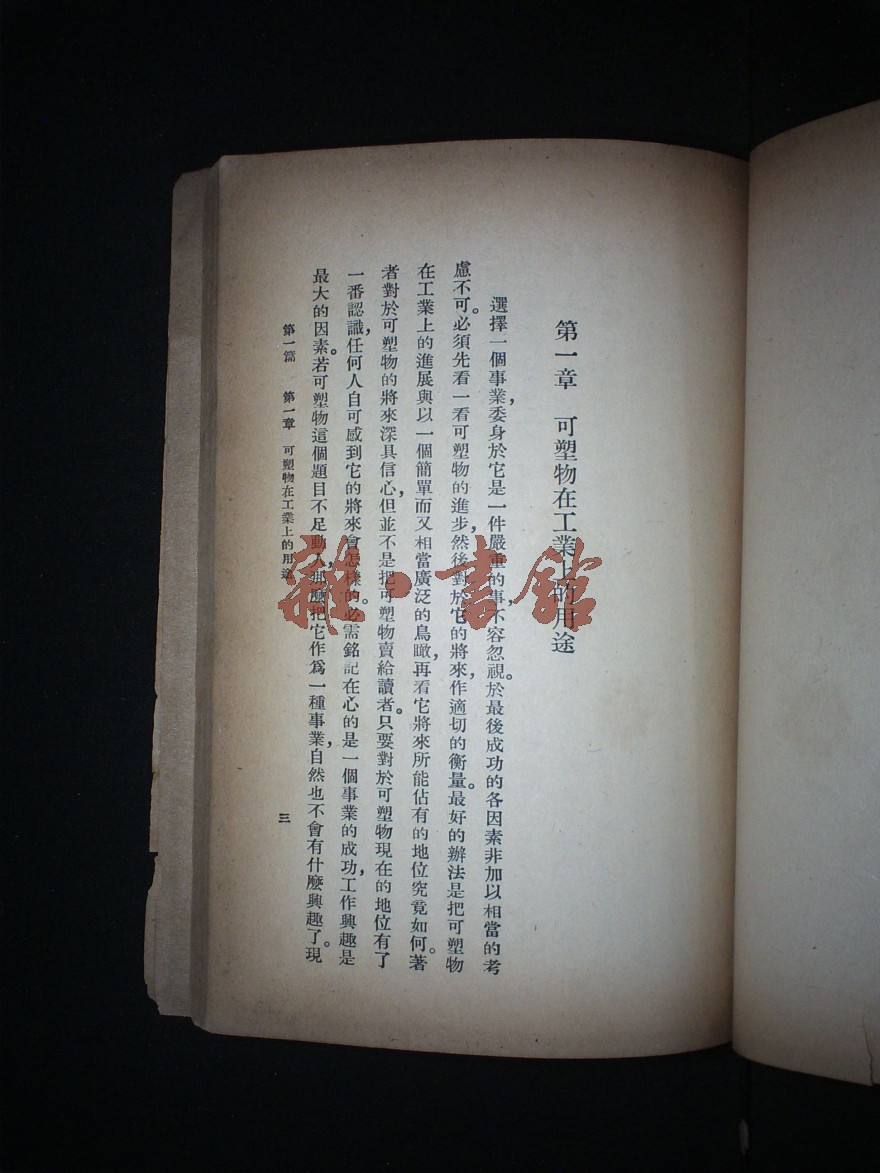 第一章　可塑物在工業上的用途
選擇一個事業，委身於它是一件嚴重的事，不容忽視。於最後成功的各因素非加以相當的考
慮不可。必須先看一看可塑物的進步，然後對於它的將來，作適切的衡量。最好的辦法是把可塑物
在工業上的進展與以一個簡單而又相當廣泛的鳥瞰，再看它將來所能佔有的地位究竟如何。著
者對於可塑物的將來深具信心，但並不是把可塑物賣給讀者。只要對於可塑物現在的地位有了
一番認識，任何人自可感到它的將來會怎樣的。必需銘記在心的是一個事業的成功，工作興趣是
最大的因素。若可塑物這個題目不足動人，那麼把它作爲一種事業，自然也不會有什麼興趣了。現
第一篇　第一章　可塑物在工業上的用途
三
雜·書館